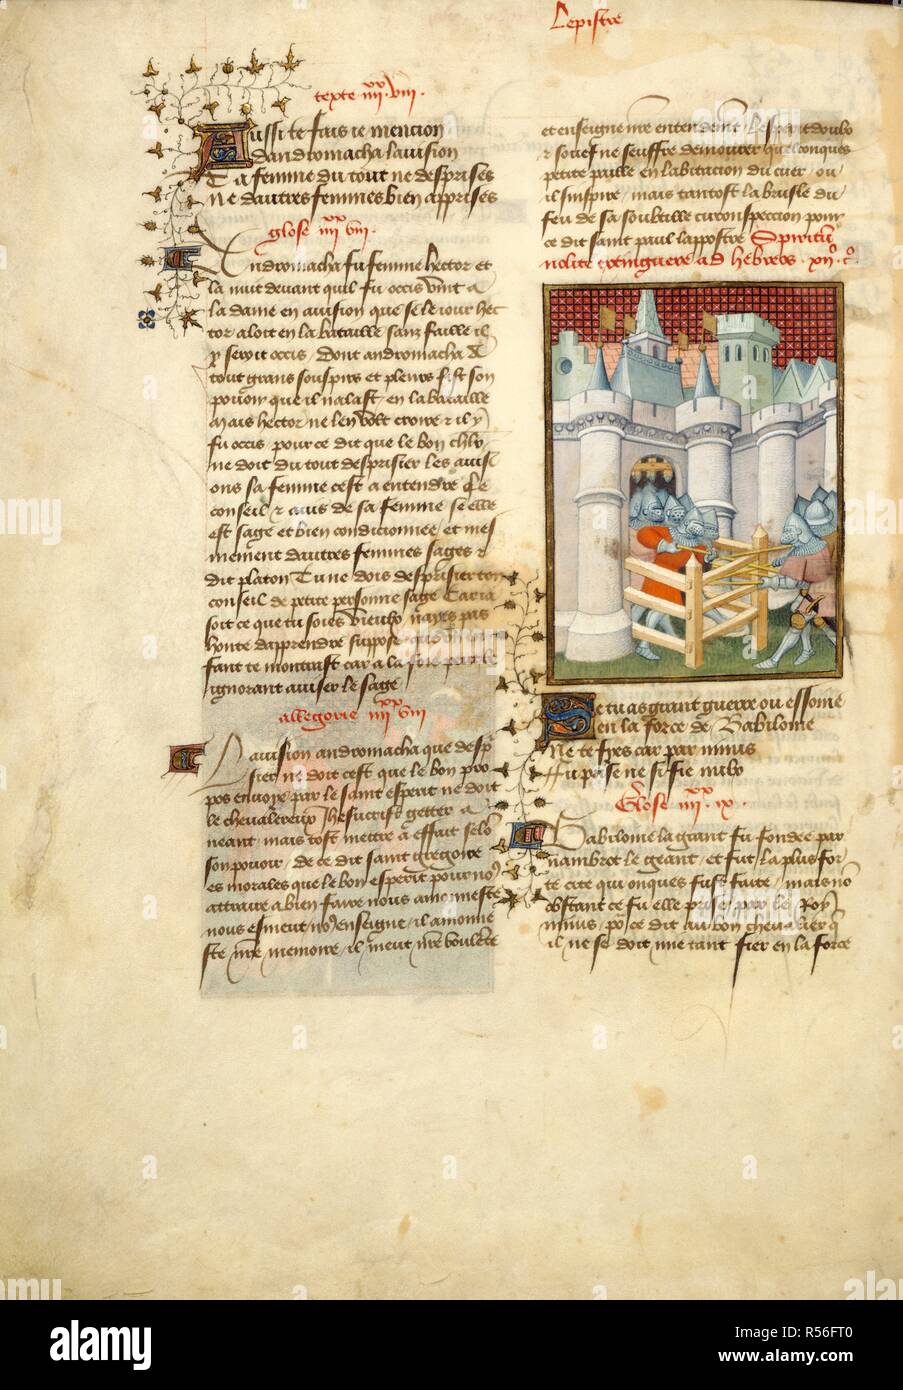 Lepistre
texte iiii xx viii.
Aussi te fais ie mencion
dandromacha lauision
Ta femme du tout ne desprises
Ne dautres femmes bien apprises
glose iiii xx viii.
Andromacha fu femme hector et
la nuit deuant quil fu occis vint a
la dame en auision que se le iour hec
tor aloit en la bataille sanz faille il
y seroit occis, dont andromacha a
tout grans souspirs et pleurs fist son
pouoir que il nalast en la bataille
Mais hector ne len volt croire & il y
fu occis, pour ce dit que le bon chlr
ne doit du tout desprisier les auisi
ons sa femme cest a entendre le
conseil & auis de sa femme se elle
est sage et bien condicionnee, et mes
mement dautres femmes sages &
dit platon Tu ne dois desprisier ton
conseil de petite personne sage Car ia
soit ce que tu soies vieulx nayes pas
honte dapprendre suppose que un
fant te monstrast car a la foie puet le
ignorant auiser le sage
allegorie iiii xx viii
Lauision andromacha que despri
sier ne doit cest que le bon pro
pos enuoye par le saint esperit ne doit
le cheualereux Jhesucrist getter a
neant, mais tost mettre a effait selon
son pouoir, de ce dit saint gregoire
es morales que le bon esperit pour nous
attraire a bien faire nous amonneste
nous esmeut nous enseigne, il amonne
ste nre memoire, il meut nre voulente
et enseigne nre entendemt, Lesperit doulx
& souef ne seuffre demourer quelconques
petite paille en labitacion du cuer, ou
il inspire, mais tantost la brusle du
feu de sa soubtille circonspeccion pour
ce dit saint paul lappostre Spiritum
nolite extinguere ad hebreos .xii. co.
Se tu as grant guerre ou essoine
en la force de Babiloine
Ne te fyes car par ninus
Fu prise ne si fie nulx
Glose iiii xx .ix.
Babiloine la grant fu fondee par
nambrot le geant, et fut la plus for
te cite qui onques fust faite, mais non
obstant ce fu elle prise par le Roy
ninus, pour ce dit au bon cheualier que
il ne se doit mie tant fier en la force
alamy
a
alamy
Image ID: R56FT0
www.alamy.com